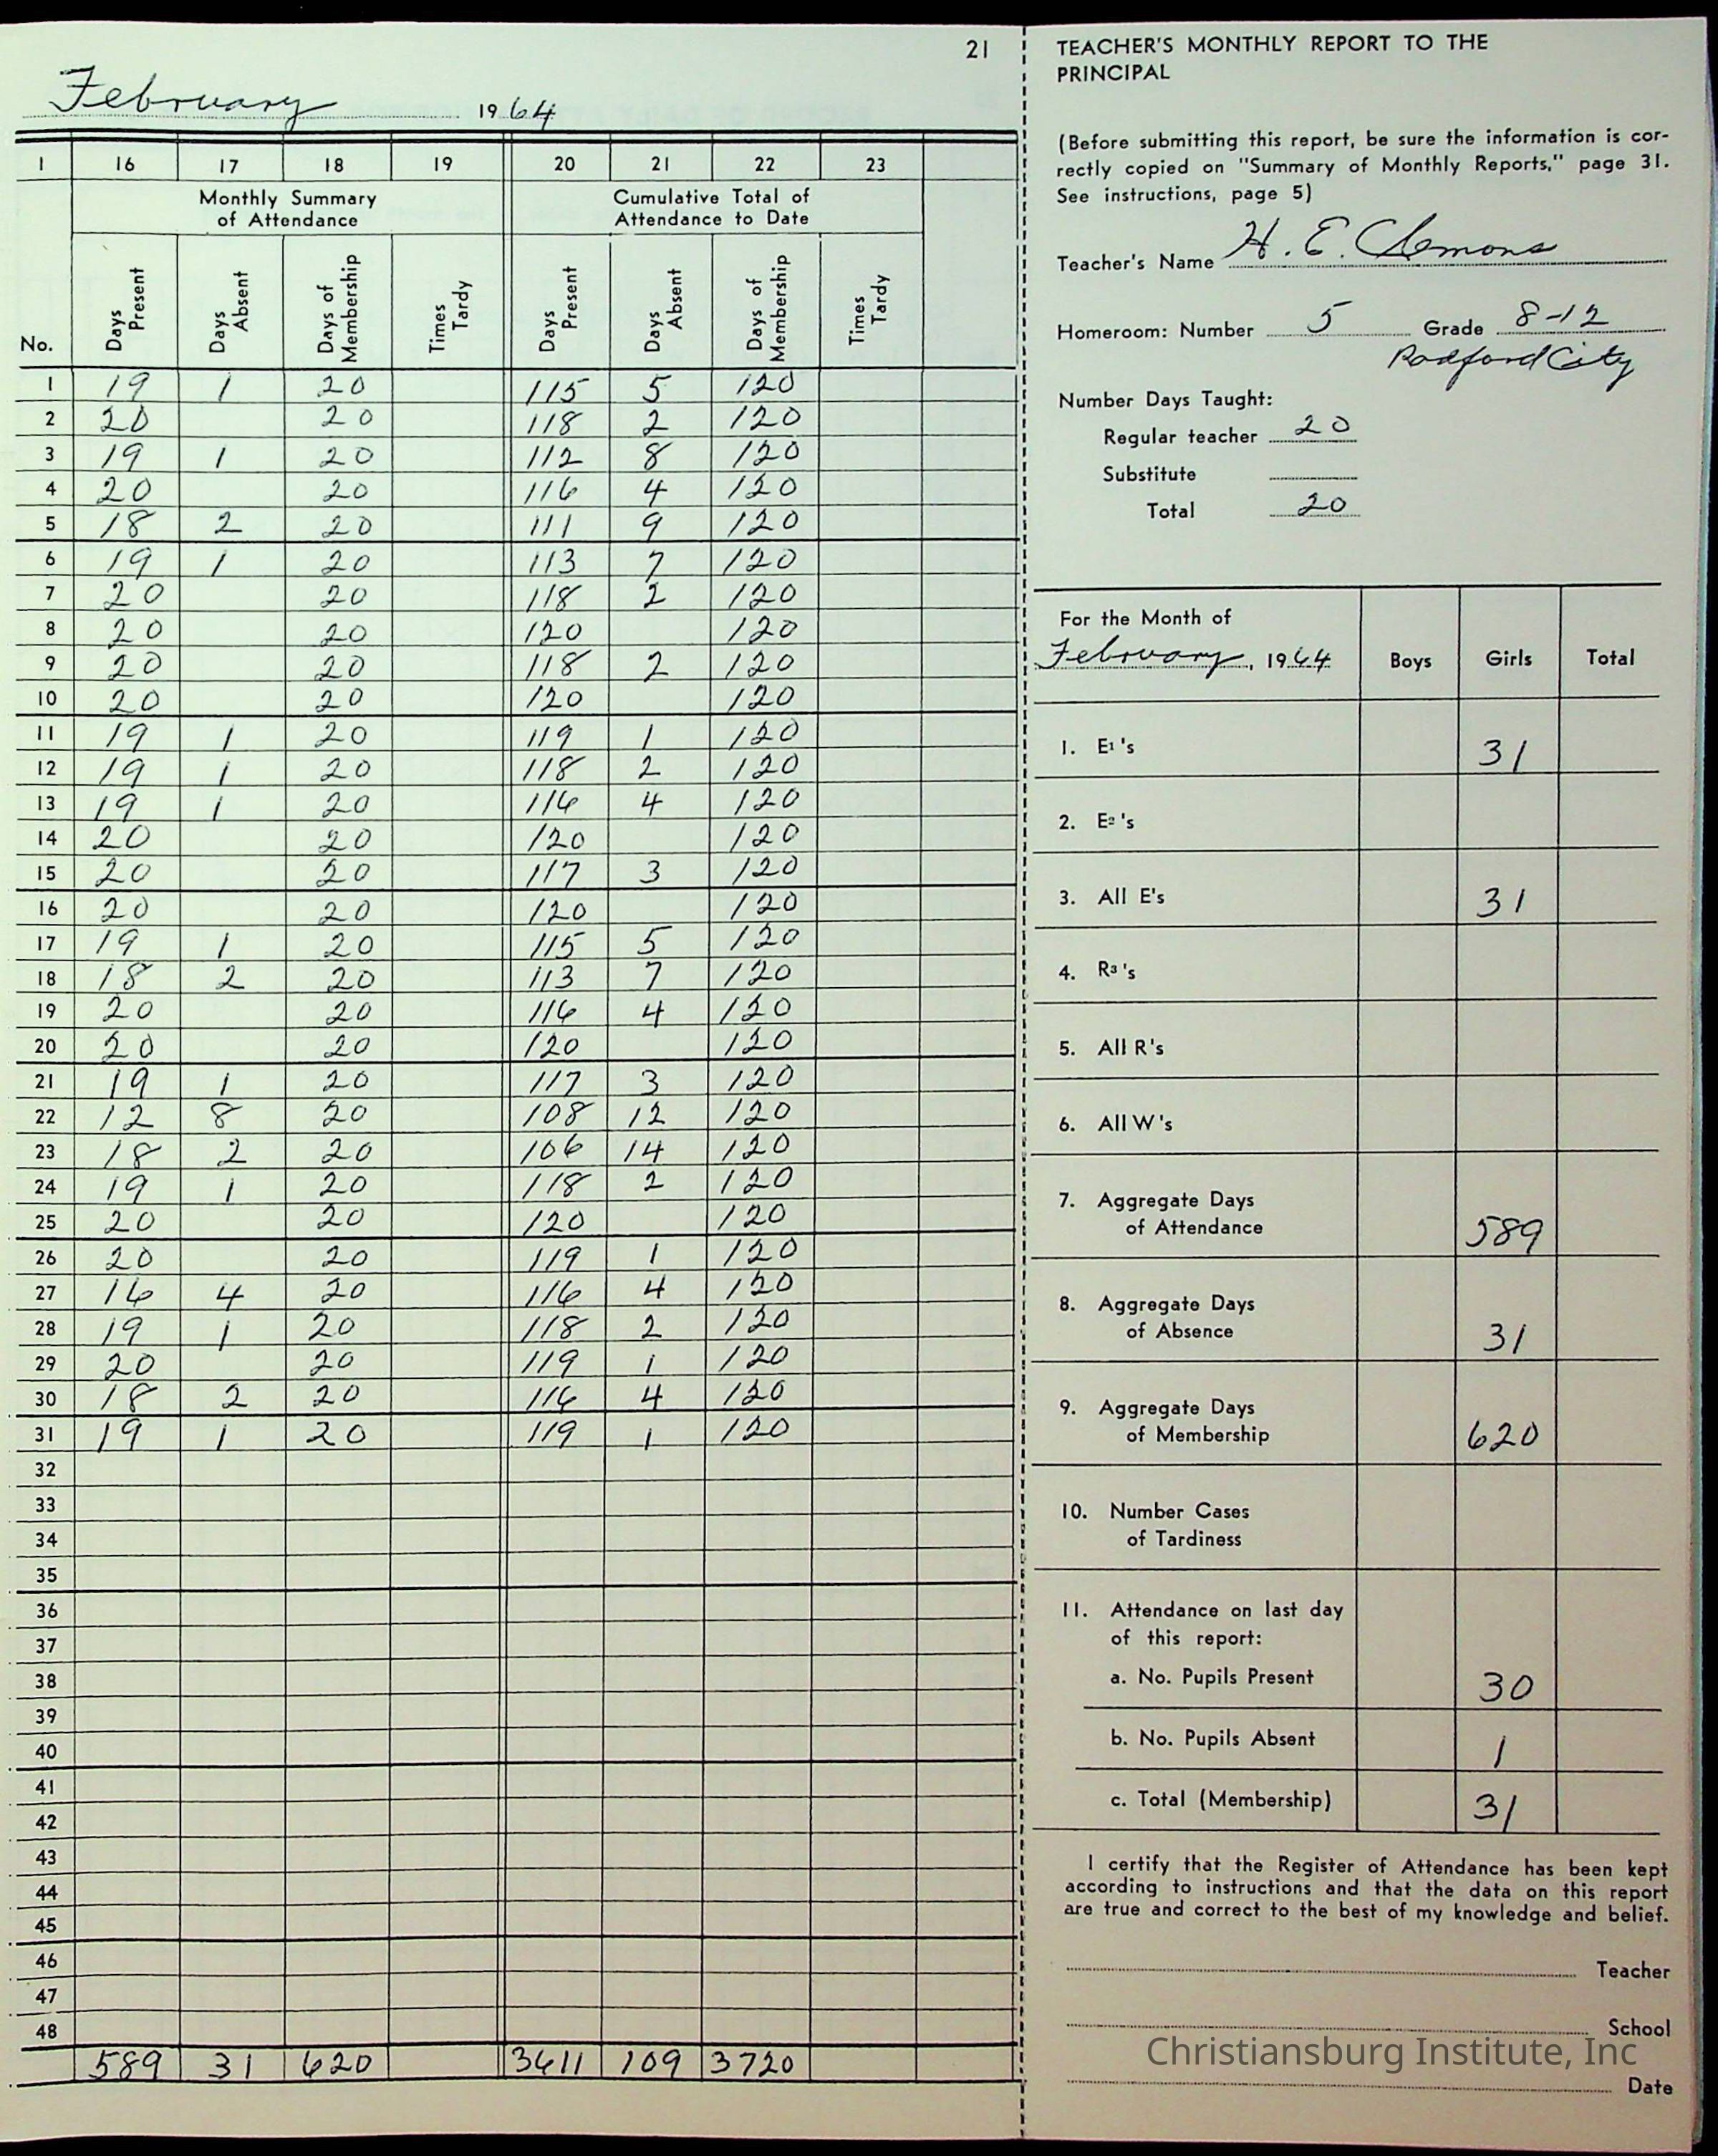 21
February 1964
1 16 17 18 19 20 21 22 23
Monthly Summary of Attendance Cumulative Total of Attendance to Date
No. Days Present Days Absent Days of Membership Times Tardy Days Present Days Absent Days of Membership Times Tardy
1 19 1 20 115 5 120
2 20 20 118 2 120
3 19 1 20 112 8 120
4 20 20 116 4 120
5 18 2 20 111 9 120
6 19 1 20 113 7 120
7 20 20 118 2 120
8 20 20 120 120
9 20 20 118 2 120
10 20 20 120 120
11 19 1 20 119 1 120
12 19 1 20 118 2 120
13 19 1 20 116 4 120
14 20 20 120 120
15 20 20 117 3 120
16 20 20 120 120
17 19 1 20 115 5 120
18 18 2 20 113 7 120
19 20 20 116 4 120
20 20 20 120 120
21 19 1 20 117 3 120
22 12 8 20 108 12 120
23 18 2 20 106 14 120
24 19 1 20 118 2 120
25 20 20 120 120
26 20 20 119 1 120
27 16 4 20 116 4 120
28 19 1 20 118 2 120
29 20 20 119 1 120
30 18 2 20 116 4 120
31 19 1 20 119 1 120
32
33
34
35
36
37
38
39
40
41
42
43
44
45
46
47
48
589 31 620 3611 109 3720
TEACHER'S MONTHLY REPORT TO THE
PRINCIPAL
(Before submitting this report, be sure the information is cor-
rectly copied on "Summary of Monthly Reports," page 31.
See instructions, page 5)
Teacher's Name H. E. Clemons
Homeroom: Number 5 Grade 8-12
Radford City
Number Days Taught:
Regular teacher 20
Substitute
Total 20
For the Month of
February, 1964 Boys Girls Total
1. E1's 31
2. E2's
3. All E's 31
4. R3's
5. All R's
6. All W's
7. Aggregate Days
of Attendance 589
8. Aggregate Days
of Absence 31
9. Aggregate Days
of Membership 620
10. Number Cases
of Tardiness
11. Attendance on last day
of this report:
a. No. Pupils Present 30
b. No. Pupils Absent 1
c. Total (Membership) 31
I certify that the Register of Attendance has been kept
according to instructions and that the data on this report
are true and correct to the best of my knowledge and belief.
Teacher
School
Christiansburg Institute, Inc
Date